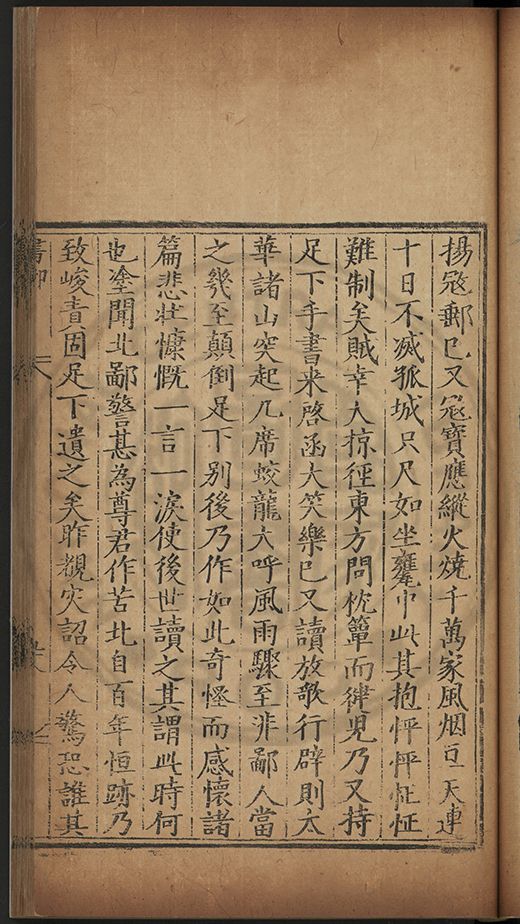 揚寇郵已又寇寶應縱火燒千萬家風烟亘天連
十日不滅孤城只尺如坐甕中此其抱怦怦怔怔
難制矣賊幸大掠徑東方問枕簟而律兒乃又持
足下手書来啓函大笑樂已又讀放歌行辟則太
華諸山突起几席蛟龍大呼風雨驟至非鄙人當
之幾至顛倒足下別後乃作如此奇怪而感懷諸
篇悲壮慷慨一言一淚使後世讀之其謂此時何
也塗聞北鄙警甚為尊君作苦北自百年恒跡乃
致峻責固足下遺之矣昨覩灾詔令人驚恐誰其